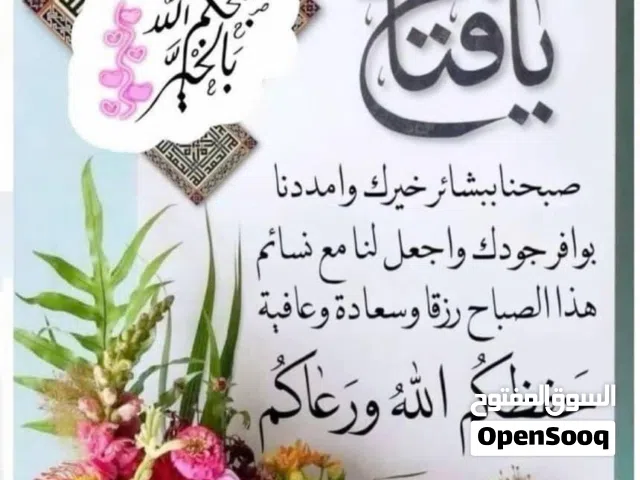 صبحكم الله
بالخير
يافتاح
صبحنا ببشائر خيرك وامددنا
بوافر جودك واجعل لنا مع نسائم
هذا الصباح رزقا وسعادة وعافية
حفظكم الله ورعاكم
السوق المفتوح
OpenSooq